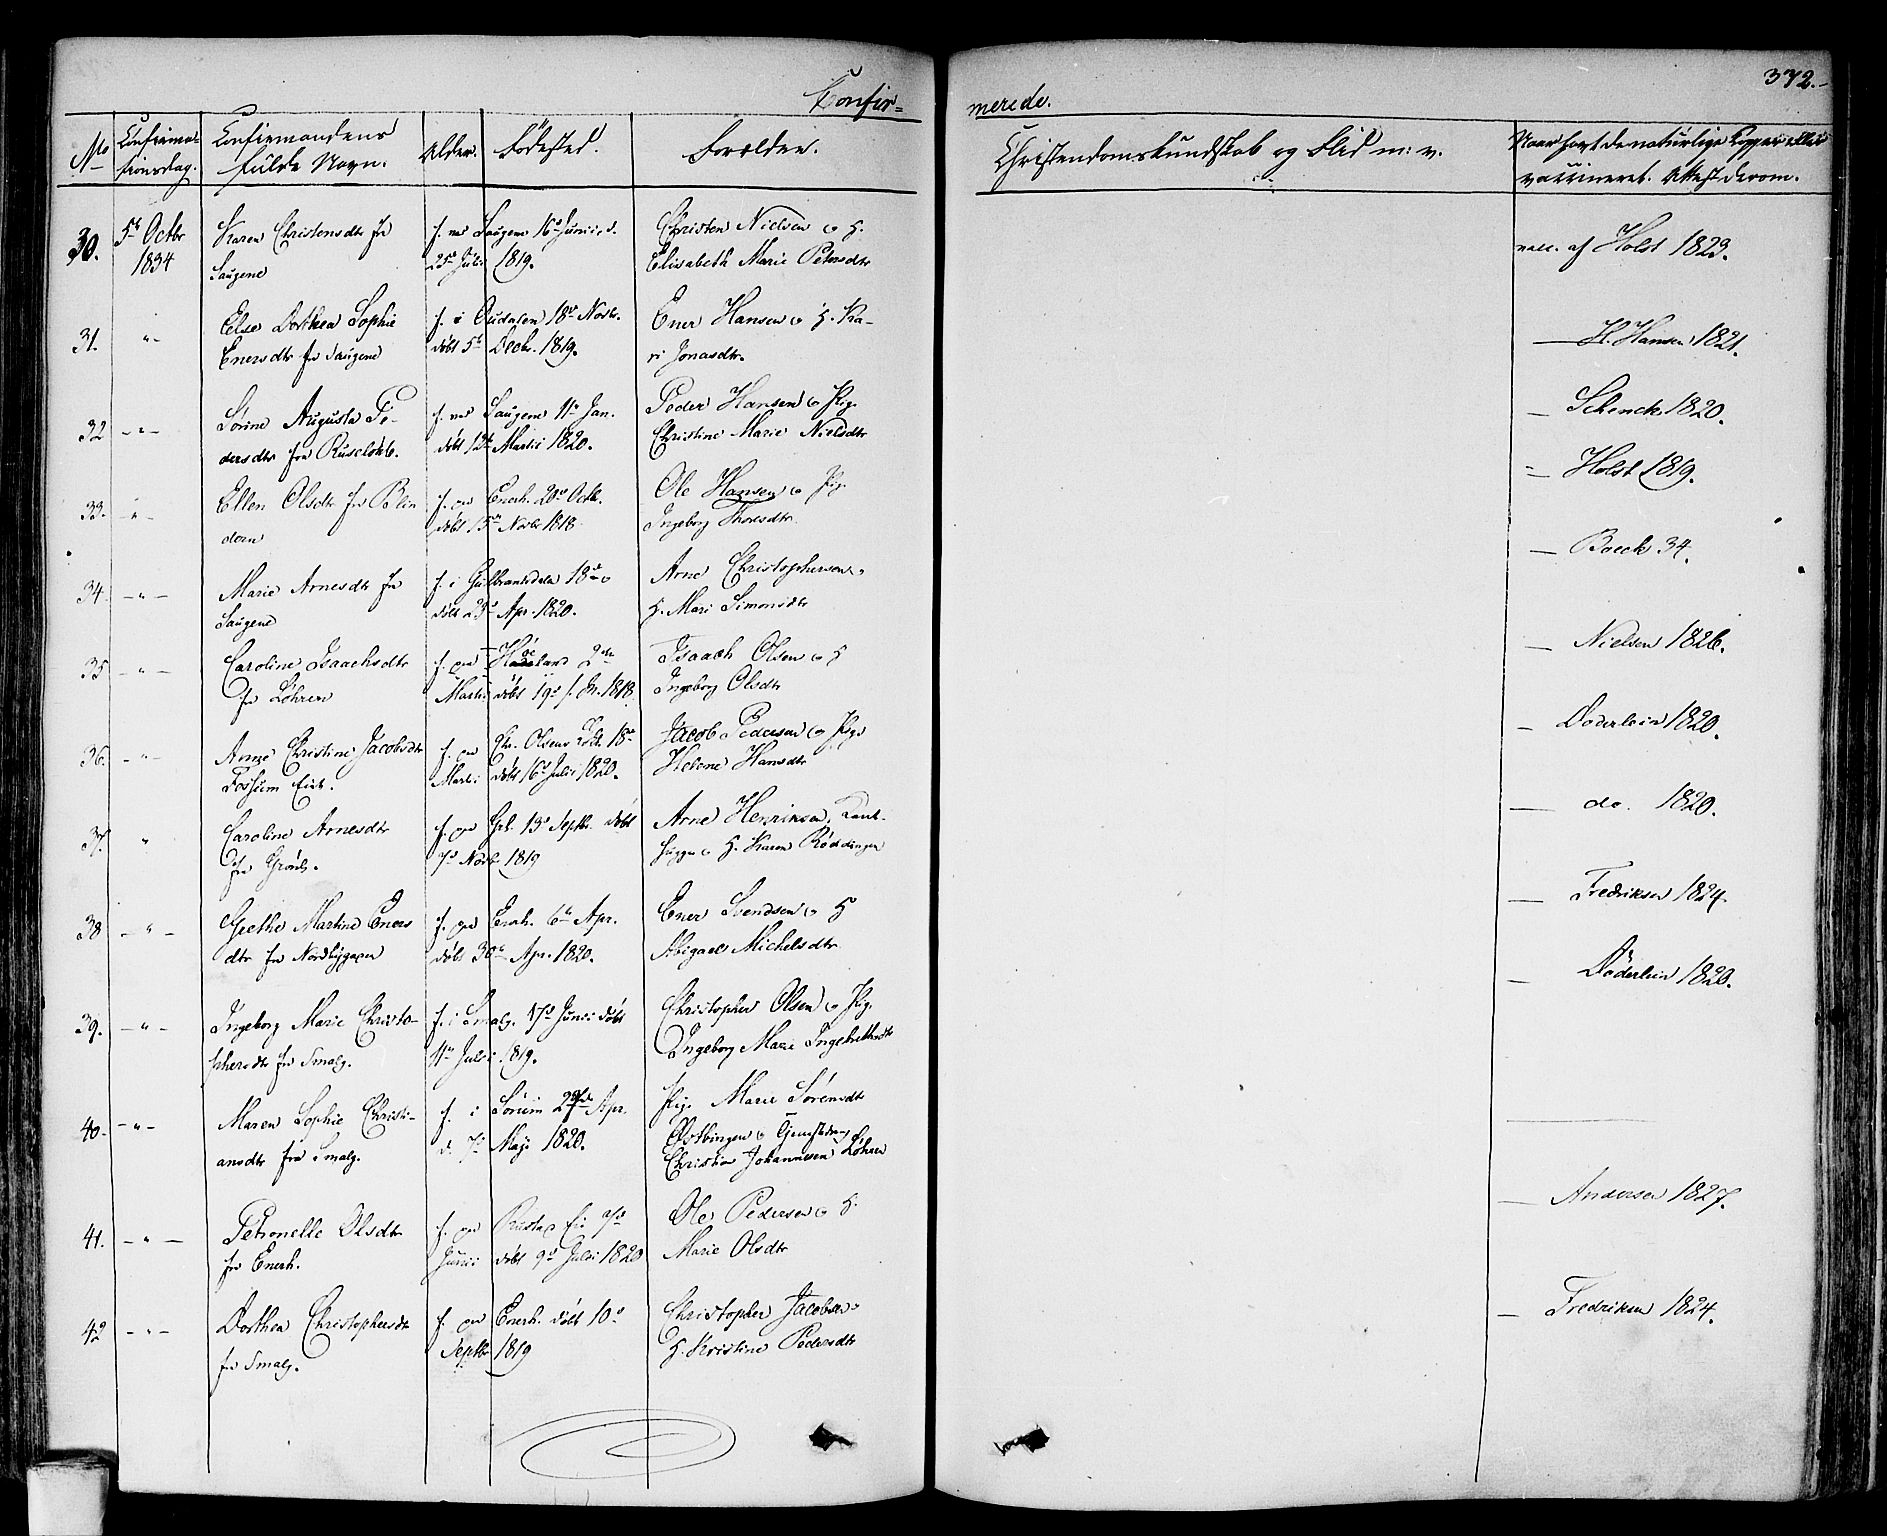 Confir=
merede.
372.-
No
Confirma-
tionsdag.
Confirmandens
fulde Navn.
Alder.
Födested.
Forældre.
Christendomskundskab og Flid m: v.
Naar havt de naturlige Kopper eller
vaccineret. Attest derom.
30. 5te Octbr
1834
Karen Christensdtr fra
Saugene
f. ved Saugene 16d Junii, d.
25d Julii 1819.
Christen Nielsen og H.
Elisabeth Marie Petersdtr
vacc. af Holst 1823.
31. -"-
Else Dorthea Sophie
Enersdtr fra Saugene
f. i Audalen 18de Novbr.
döbt 5te Decbr. 1819.
Ener Hansen og H. Ka-
ri Jonasdtr.
— H. Hansen 1821.
32 -"-
Sörine Augusta Pe-
dersdtr fra Ruseløkb.
f. ved Saugene 11te Jan.
döbt 12te Martii 1820.
Peder Hansen og Pig.
Christine Marie Nielsdtr
— Schenck 1820.
33. -"-
Ellen Olsdtr fra Blin
dern
f. paa Enerh. 20de Octb.
döbt 15de Novbr 1818.
Ole Hansen og Pig.
Ingeborg Thoresdtr
= Holst 1819.
34. -"-
Marie Arnesdtr fra
Saugene
f. i Gulbransdalen 18de
döbt 23d Apr. 1820.
Arne Christophersen og
H. Mari Simonsdtr
— Boeck 34.
35 -"-
Caroline Isaachsdtr
fra Løhren
f. paa Hadeland 2den
Martii döbt 19d s. M. 1818.
Isaach Olsen og H
Ingeborg Olsdtr
— Nielsen 1826.
36. -"-
Anne Christine Jacobsdtr
Fossum Eier.
f. paa Chr. Olsens Løkke 18de
Martii döbt 16d Julii 1820.
Jacob Pedersen og Pige
Helene Hansdtr
— Døderlein 1820.
37. "
Caroline Arnesdtr
fra Grønl.
f. paa Grl. 13d Septbr. döbt
7d Novbr 1819
Arne Henriksen
H. Karen Röddingen
— do. 1820.
38 -"-
Grethe Martine Eners
dtr fra Nordbygaden
f. paa Enerh. 6te Apr.
döbt 30te Apr. 1820.
Ener Svendsen og H
Abigael Michelsdtr
— Fredriksen 1824.
39. -"-
Ingeborg Marie Christo-
phersdtr fra Smalg.
f. i Smalg. 17d Junii döbt
11te Julii 1819.
Christopher Olsen og Pig.
Ingeborg Marie Ingebrethsdtr
— Döderlein 1820.
40. -"-
Maren Sophie Christi-
ansdtr fra Smalg.
f. i Sörum Apr.
d. 7d Maji 1820.
Pig. Marie Sörensdtr
Østbingen og
Christian Johannesen Løhren
41. -"-
Petronelle Olsdtr
fra Enerh.
f. paa 7d
Junii döbt 9d Julii 1820
Ole Pedersen og H.
Marie Olsdtr
— Andersen 1827.
42 -"-
Dorthea Christophersdtr
fra Smalg.
f. paa Enerh. döbt 10d
Septbr 1819
Christopher Jacobsen og
H. Kristine Pedersdtr
— Fredriksen 1824.